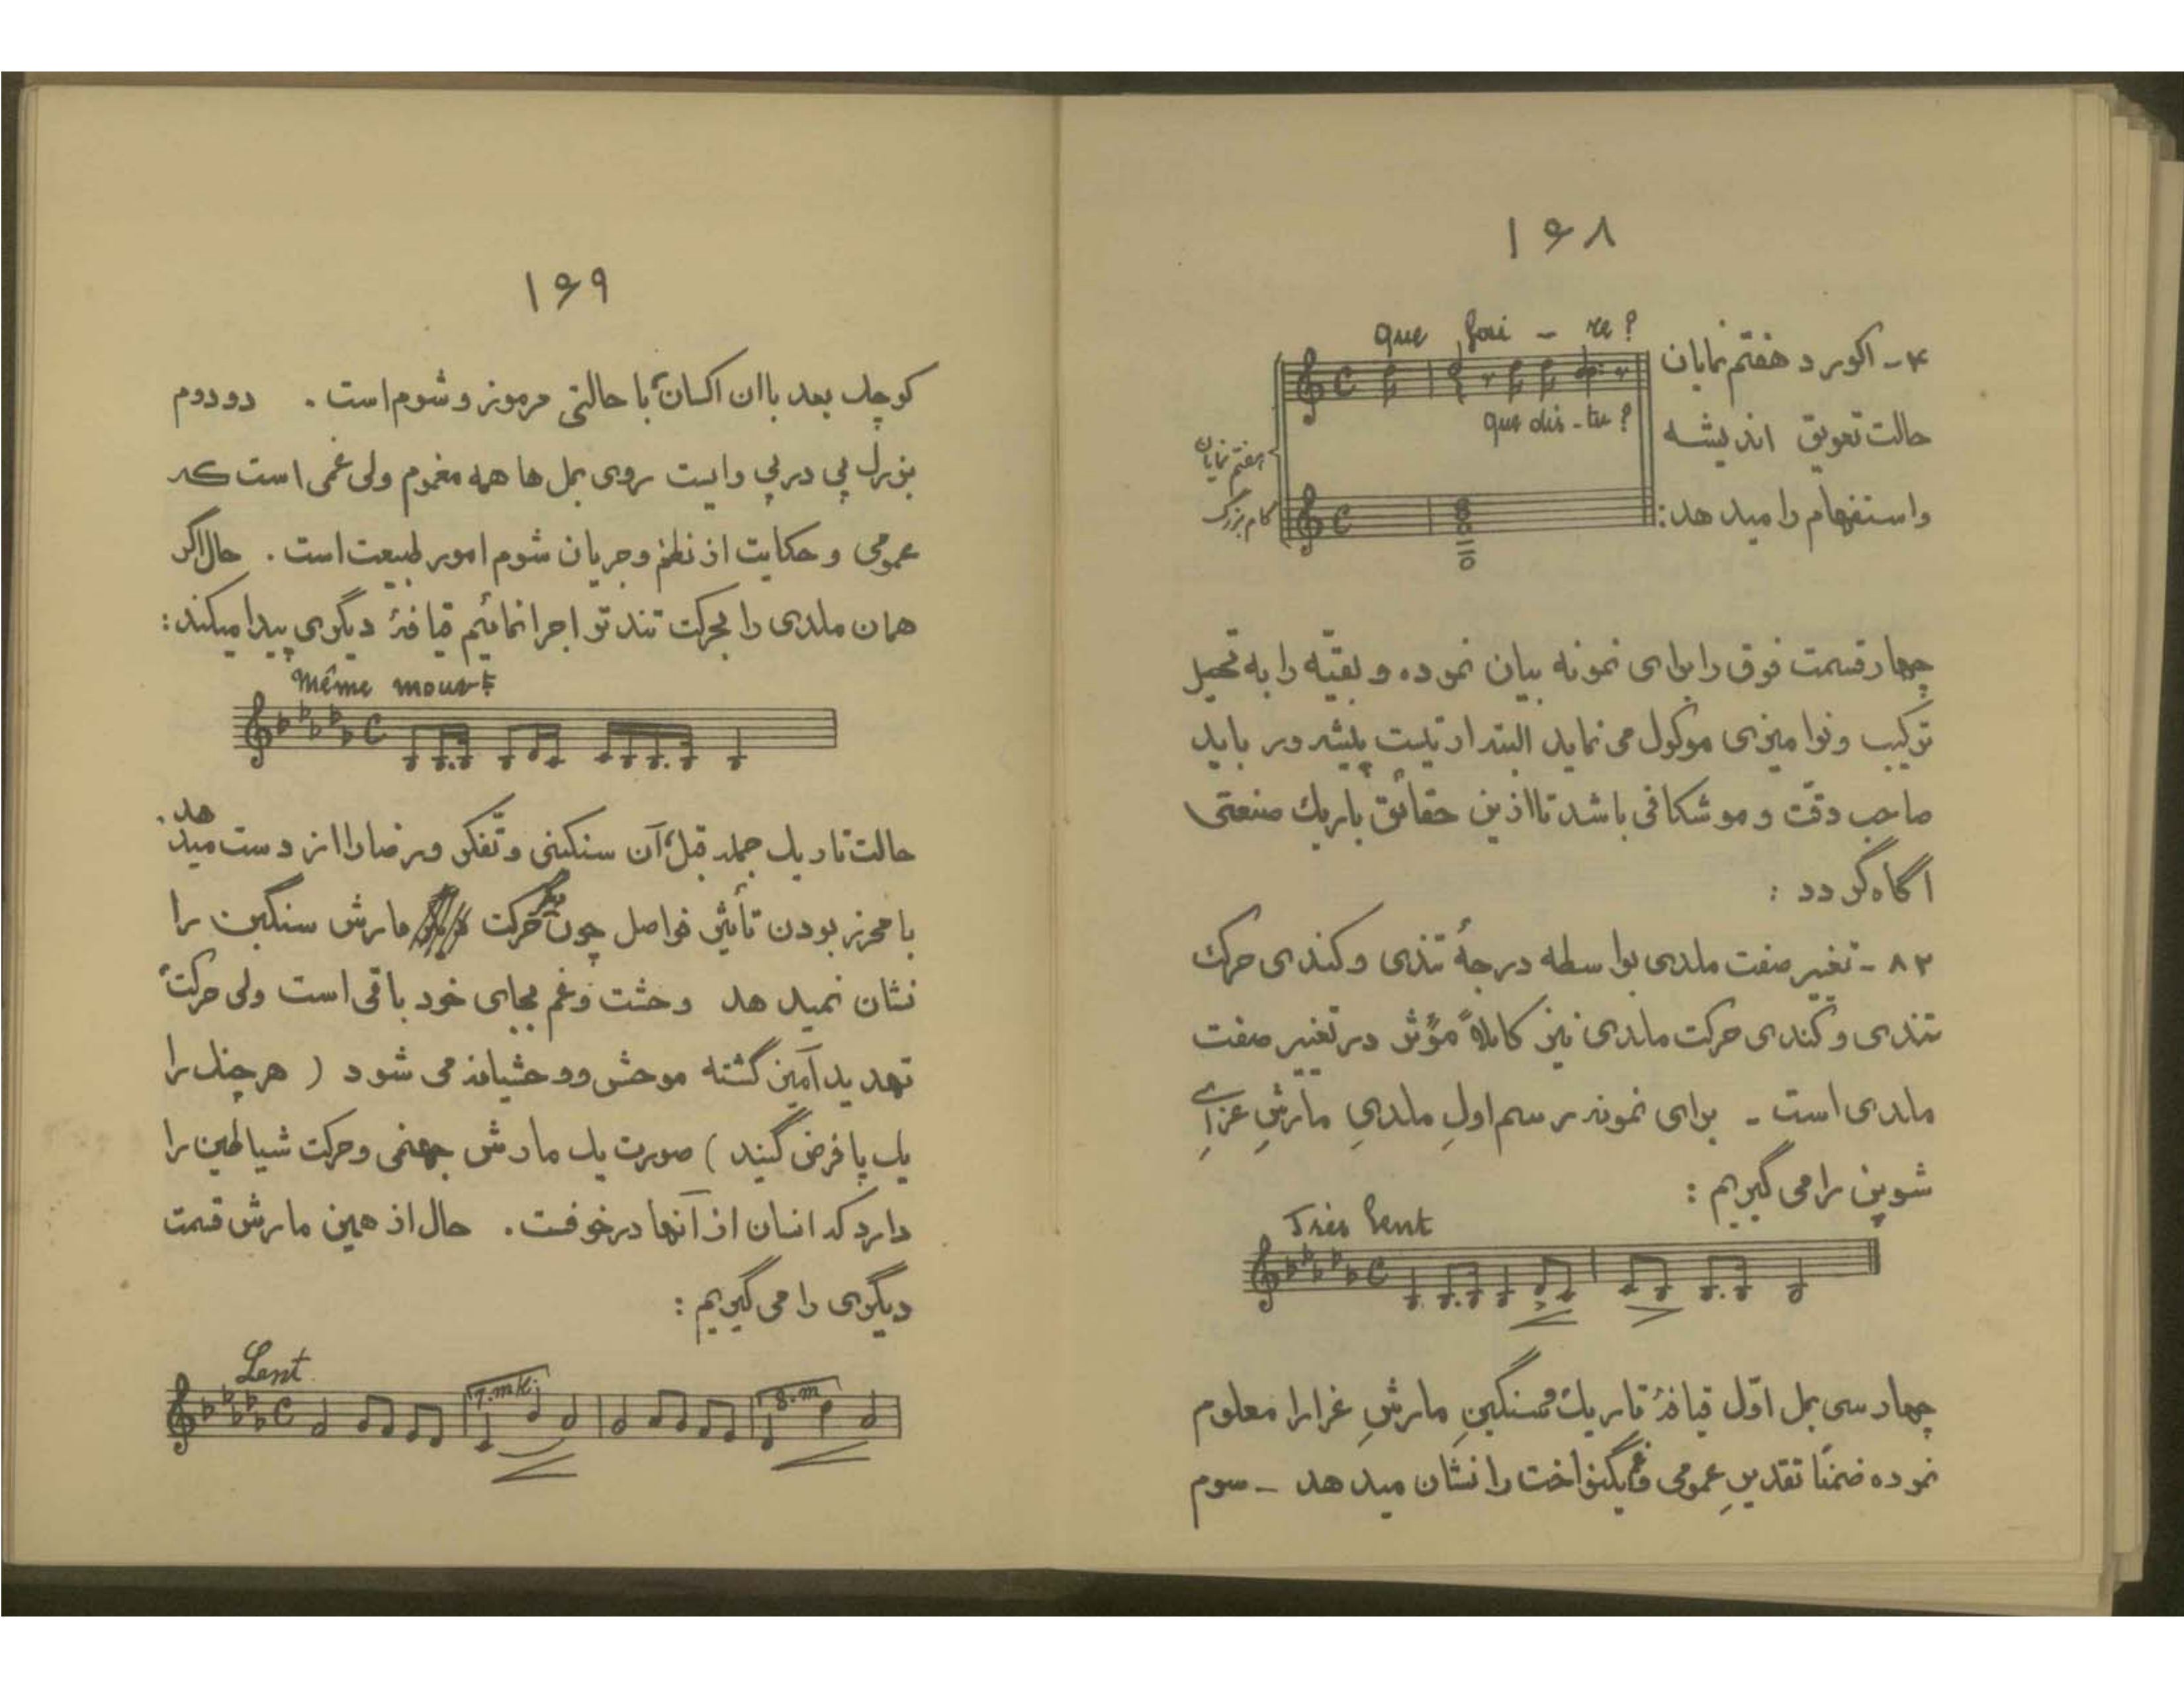 ۱۶۸
que fai - re?
۴ - اکورد هفتم نمایان
que dis - tu?
حالت تعویق اندیشه
هفتم نمایان
گام بزرگ
واستفهام را میدهد:
چهارقسمت فوق را برای نمونه بیان نموده و بقیّه را به تحصیل
ترکیب و نوامیزی موکول می نماید البته ارتیست پیشه ور باید
صاحب دقّت و موشکافی باشد تا ازین حقائق باریك صنعتی
اگاه گردد :
۸۲ - تغییر صفت ملدی بواسطه درجهٔ تندی وکندی حرکت
تندی وکندی حرکت ملدی نیز کاملاً مؤثر در تغییر صفت
ملدی است - برای نمونه رسم اولِ ملدیِ مارشِ عزایِ
شوپن را می گیریم :
Très lent
چهار سی بمل اوّل قیافهٔ تاریك و سنگینِ مارشِ عزا را معلوم
نموده ضمنًا تقدیرِ عمومی و غم یکنواخت را نشان میدهد - سوم
۱۶۹
کوچك بعد با ان اکسان با حالتی مرموز و شوم است . دو دوم
بزرك پی درپی و ایست روی بمل ها همه مغموم ولی غمی است که
عمومی و حکایت از نظم و جریان شوم امور طبیعت است . حال اگر
همان ملدی را بحرکت تند تر اجرا نمائیم قیافهٔ دیگری پیدا میکند :
Même mouvt
حالت تاریك جمله قبل آن سنگینی و تفکر و رضا را از دست میدهد .
با محرز بودن تأثیر فواصل چون حرکت مارش سنگین را
نشان نمیدهد وحشت و غم بجای خود باقی است ولی حرکت
تهدید آمیز گشته موحش و وحشیانه می شود ( هر چنك را
یك پا فرض کنید ) صورت یك مارش جهنمی و حرکت شیاطین را
دارد که انسان از آنها درخوفست . حال از همین مارش قسمت
دیگری را می گیریم :
Lent
7.m
8.m